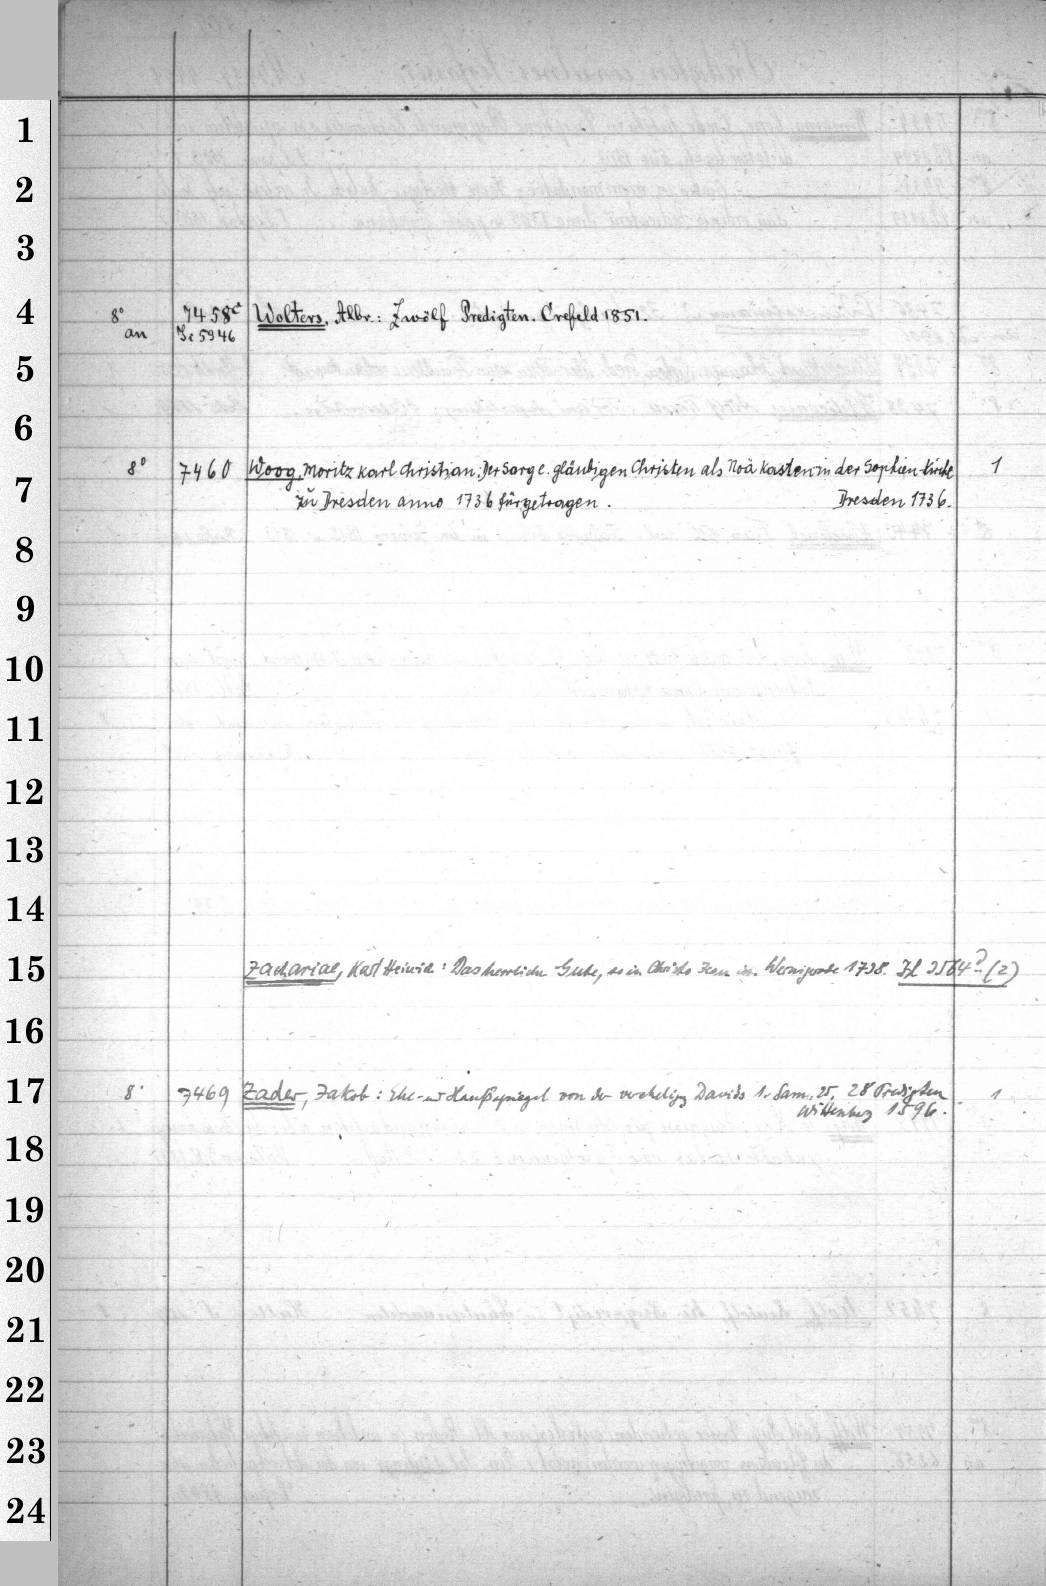 1
2
3
4
8° 7458a Wolters, Albr.: Zwölf Predigten. Crefeld 1851.
an Ic 5946
5
6
8° 7460 Woog, Moritz Karl Christian: Der Sarg e. gläubigen Christen als Noä Kasten in der Sophien-Kirche 1
7
zu Dresden anno 1736 fürgetragen. Dresden 1736.
8
9
10
11
12
13
14
15
Zachariae, Karl Heinrich: Das herrliche Gute, so in Christo Jesu ist. Wernigerode 1738. 3564 (2)
16
17
8° 7469 Zader, Jakob: Ehe- und Haußspiegel von der Davids 1. Sam. 25, 28 Predigten 1
Wittenberg 1596.
18
19
20
21
22
23
24